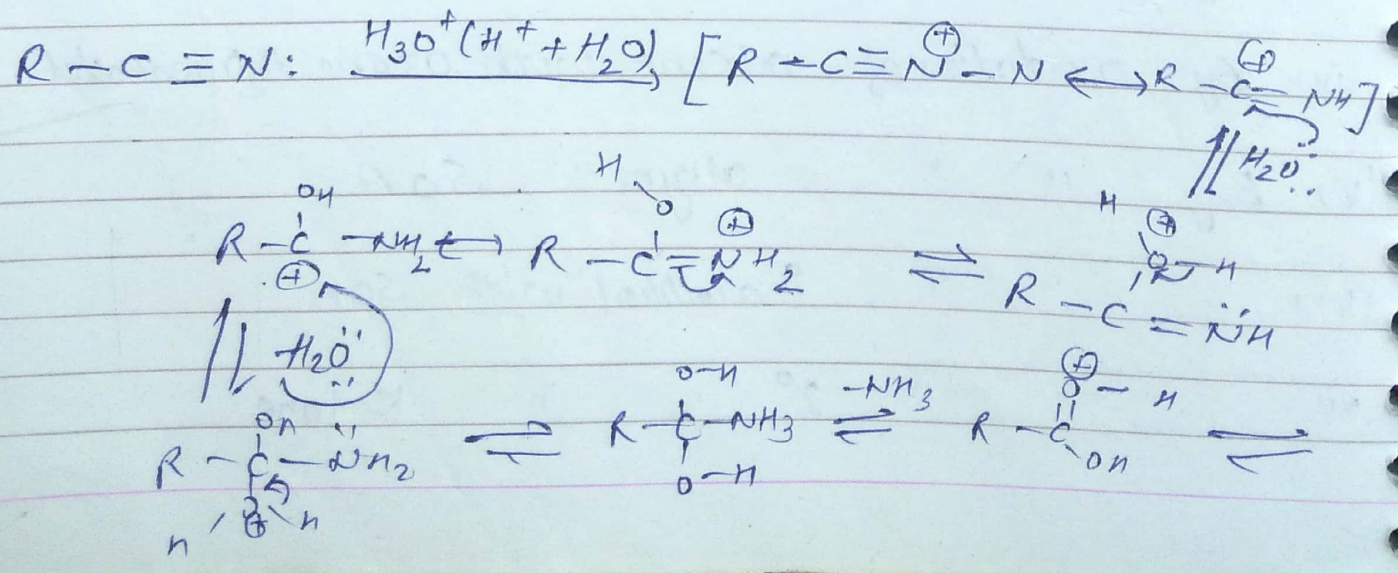 R – C ≡ N: H₃O⁺ (H⁺ + H₂O) → [R – C ≡ N⊕ – N ↔ R – C⊕ = NH]
⇌ H₂Ö:
R – C(OH)⊕ – NH₂ ↔ R – C(O–H) = N⊕H₂ ⇌ R – C(O⊕(H)–H) = N̈H
⇌ H₂Ö:
R – C(OH)(O⊕(H)(H)) – N̈H₂ ⇌ R – C(O–H)(O–H) – NH₃ –NH₃ ⇌ R – C(=O⊕–H)OH ⇌